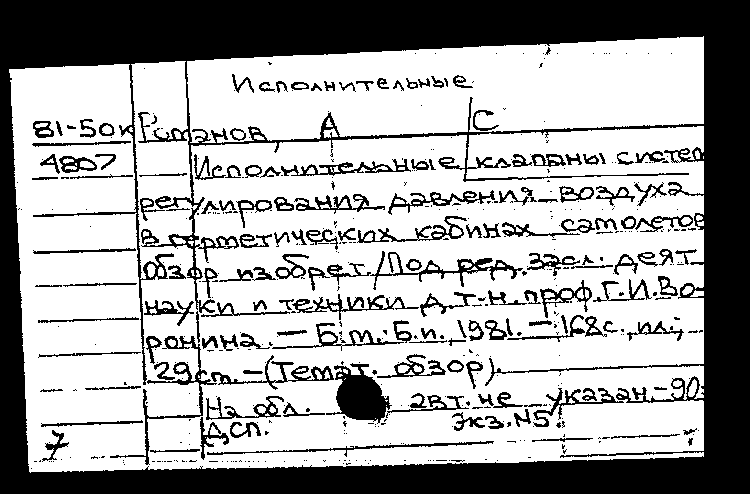 Исполнительные
81-50к Романов, А С
4807 Исполнительные клапаны систем
регулирования давления воздуха
в герметических кабинах самолетов
обзор изобрет./Под ред. засл. деят.
науки и техники д.т.н. проф. Г.И. Во-
ронина. — Б.м.: Б.и., 1981. — 168с., ил.;
29см. — (Темат. обзор).
На обл. авт. не указан. - 90
Дсп. Экз. N5.
7